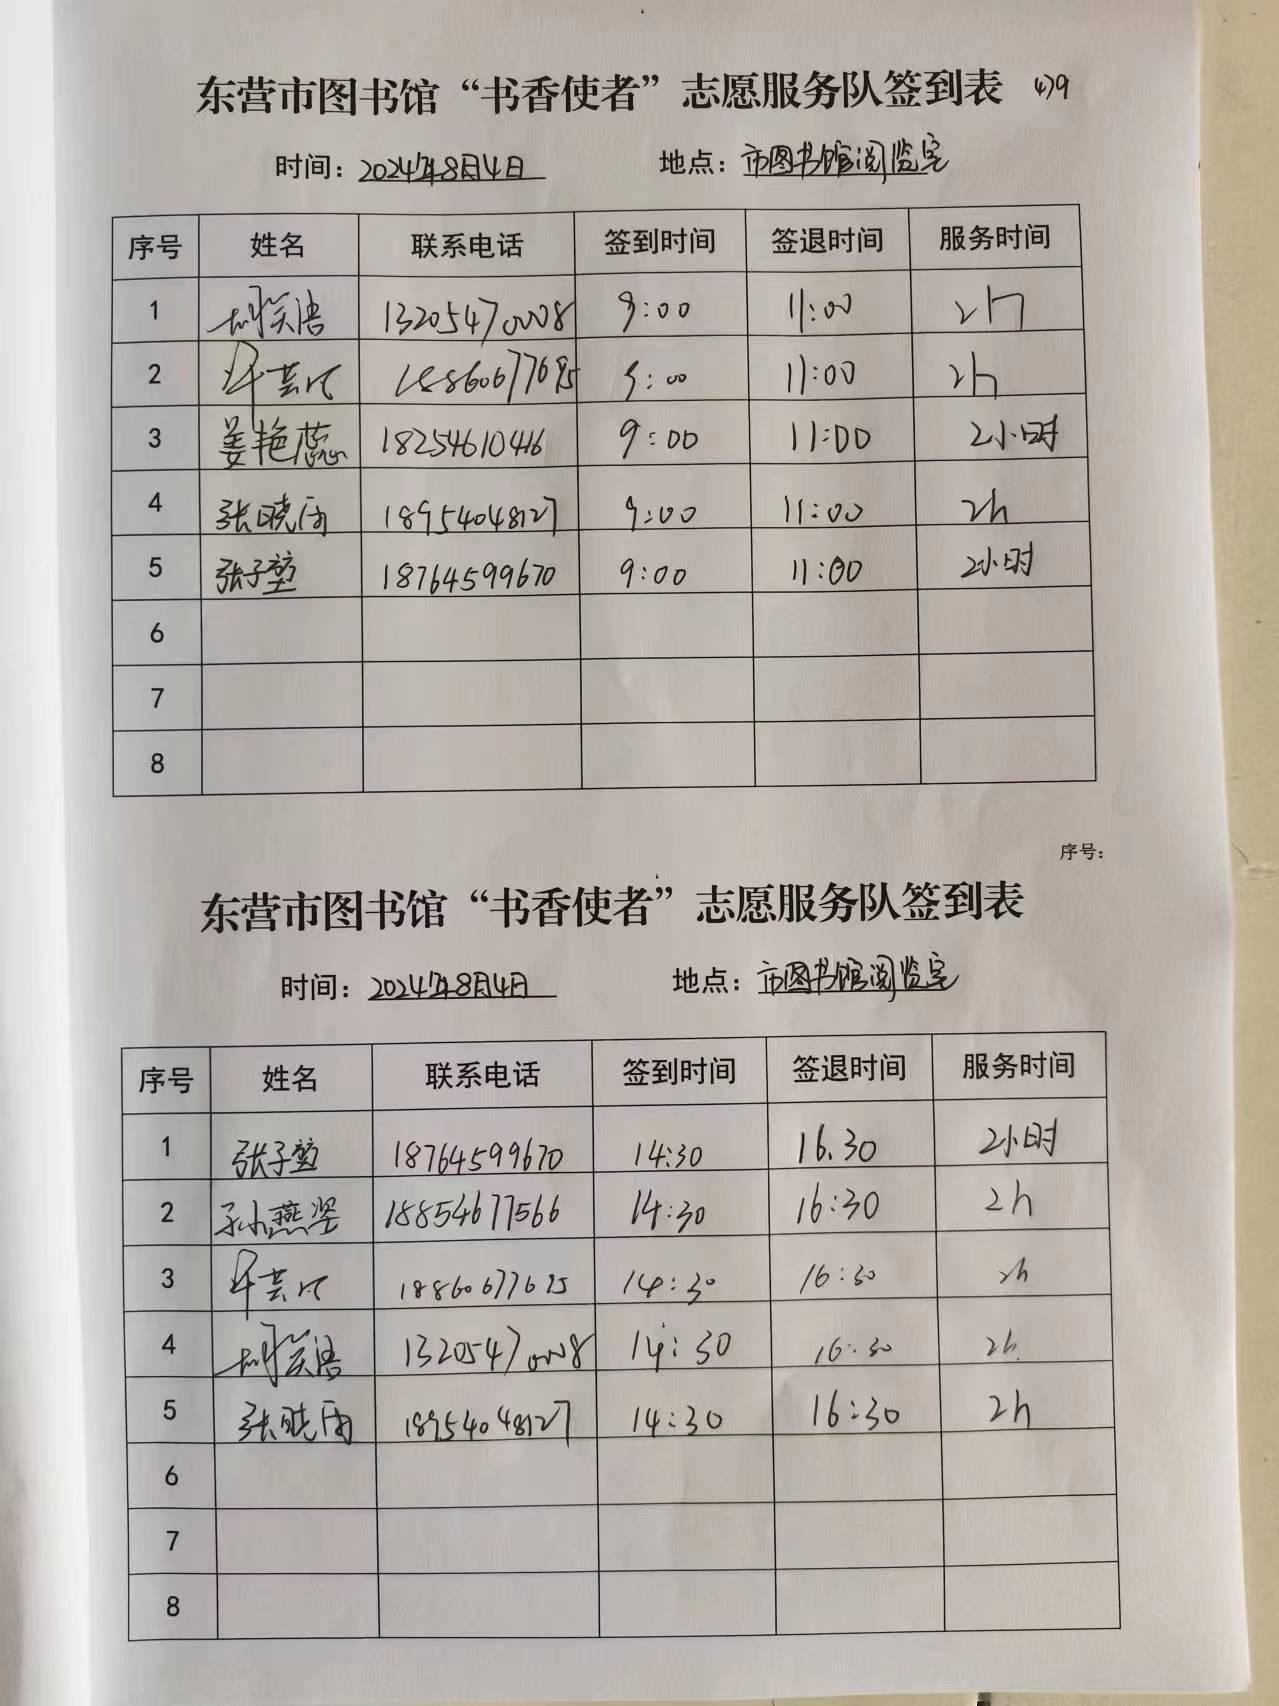 东营市图书馆“书香使者”志愿服务队签到表 479
时间：2024年8月4日 地点：市图书馆阅览室
序号 姓名 联系电话 签到时间 签退时间 服务时间
1 13205470008 9:00 11:00 2h
2 9:00 11:00 2h
3 姜艳蕊 18254610416 9:00 11:00 2小时
4 张晓雨 18954048127 9:00 11:00 2h
5 张子堃 18764599670 9:00 11:00 2小时
6
7
8
序号：
东营市图书馆“书香使者”志愿服务队签到表
时间：2024年8月4日 地点：市图书馆阅览室
序号 姓名 联系电话 签到时间 签退时间 服务时间
1 张子堃 18764599670 14:30 16.30 2小时
2 孙燕 18854677566 14:30 16:30 2h
3 14:30 16:30 2h
4 13205470008 14:30 16:30 2h
5 张晓雨 18954048127 14:30 16:30 2h
6
7
8